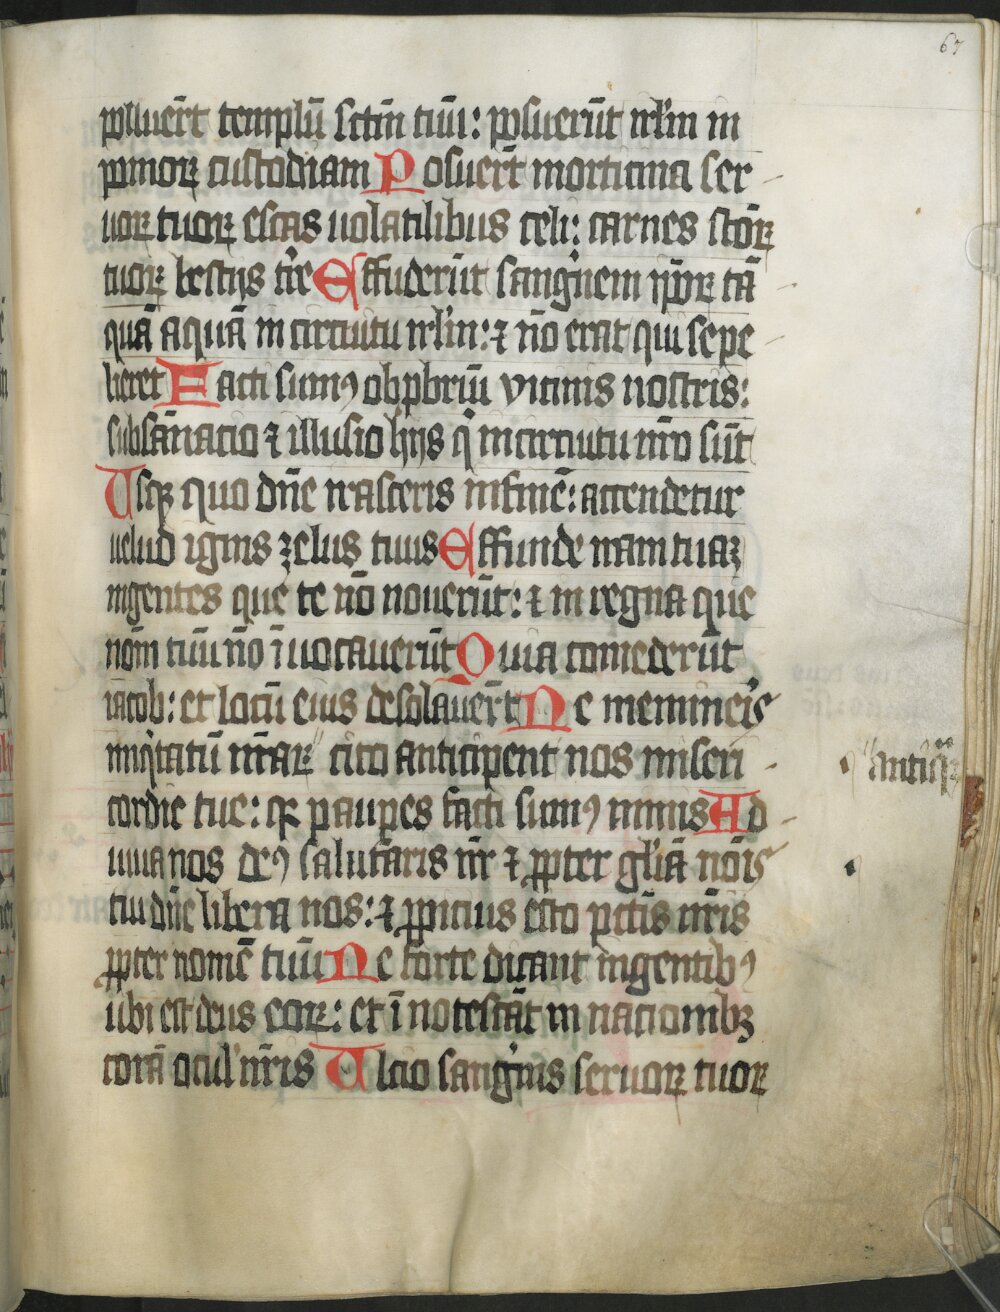 67
polluer̄t templū sctm̄ tuū: posuerūt ɪrl̄m in
pomoꝝ custodiam Posuer̄t morticina ser
uoꝝ tuoꝝ escas uolatilibus celi: carnes sc̄oꝝ
tuoꝝ bestijs tr̄e Effuderūt sanguinem ip̄oꝝ tā
quā aquā in circuitu ɪrl̄m: ⁊ nō erat qui sepe
liret Facti sumꝰ obpbriū vicinis nostris:
subsānatio ⁊ illusio hijs qͥ in circuitu nr̄o sūt
Usqꝫ quo dn̄e irasceris in finē: accendetur
uelud ignis zelus tuus Effunde iram tuaꝫ
in gentes que te nō nouerūt: ⁊ in regna que
nom̄ tuū nō īuocauerūt Quia comederūt
iacob: et locū eius desolauer̄t Ne memineris
iniqͥtatū nr̄aꝝ " cito anticipent nos miseri
cordie tue: qꝛ pauꝑes facti sumꝰ nimis Ad
iuua nos deꝰ salutaris nr̄ ⁊ ꝓpter gl̄iā nōis
tui dn̄e libera nos: ⁊ ꝓpicius esto pctīs nr̄is
ꝓpter nomē tuū Ne forte dicant in gentibꝰ
ubi est deus eoꝝ: et īnotescāt in nacionibꝫ
corā ocul' nr̄is Ulcio sangͥnis seruoꝝ tuoꝝ
" antiqͣꝝ